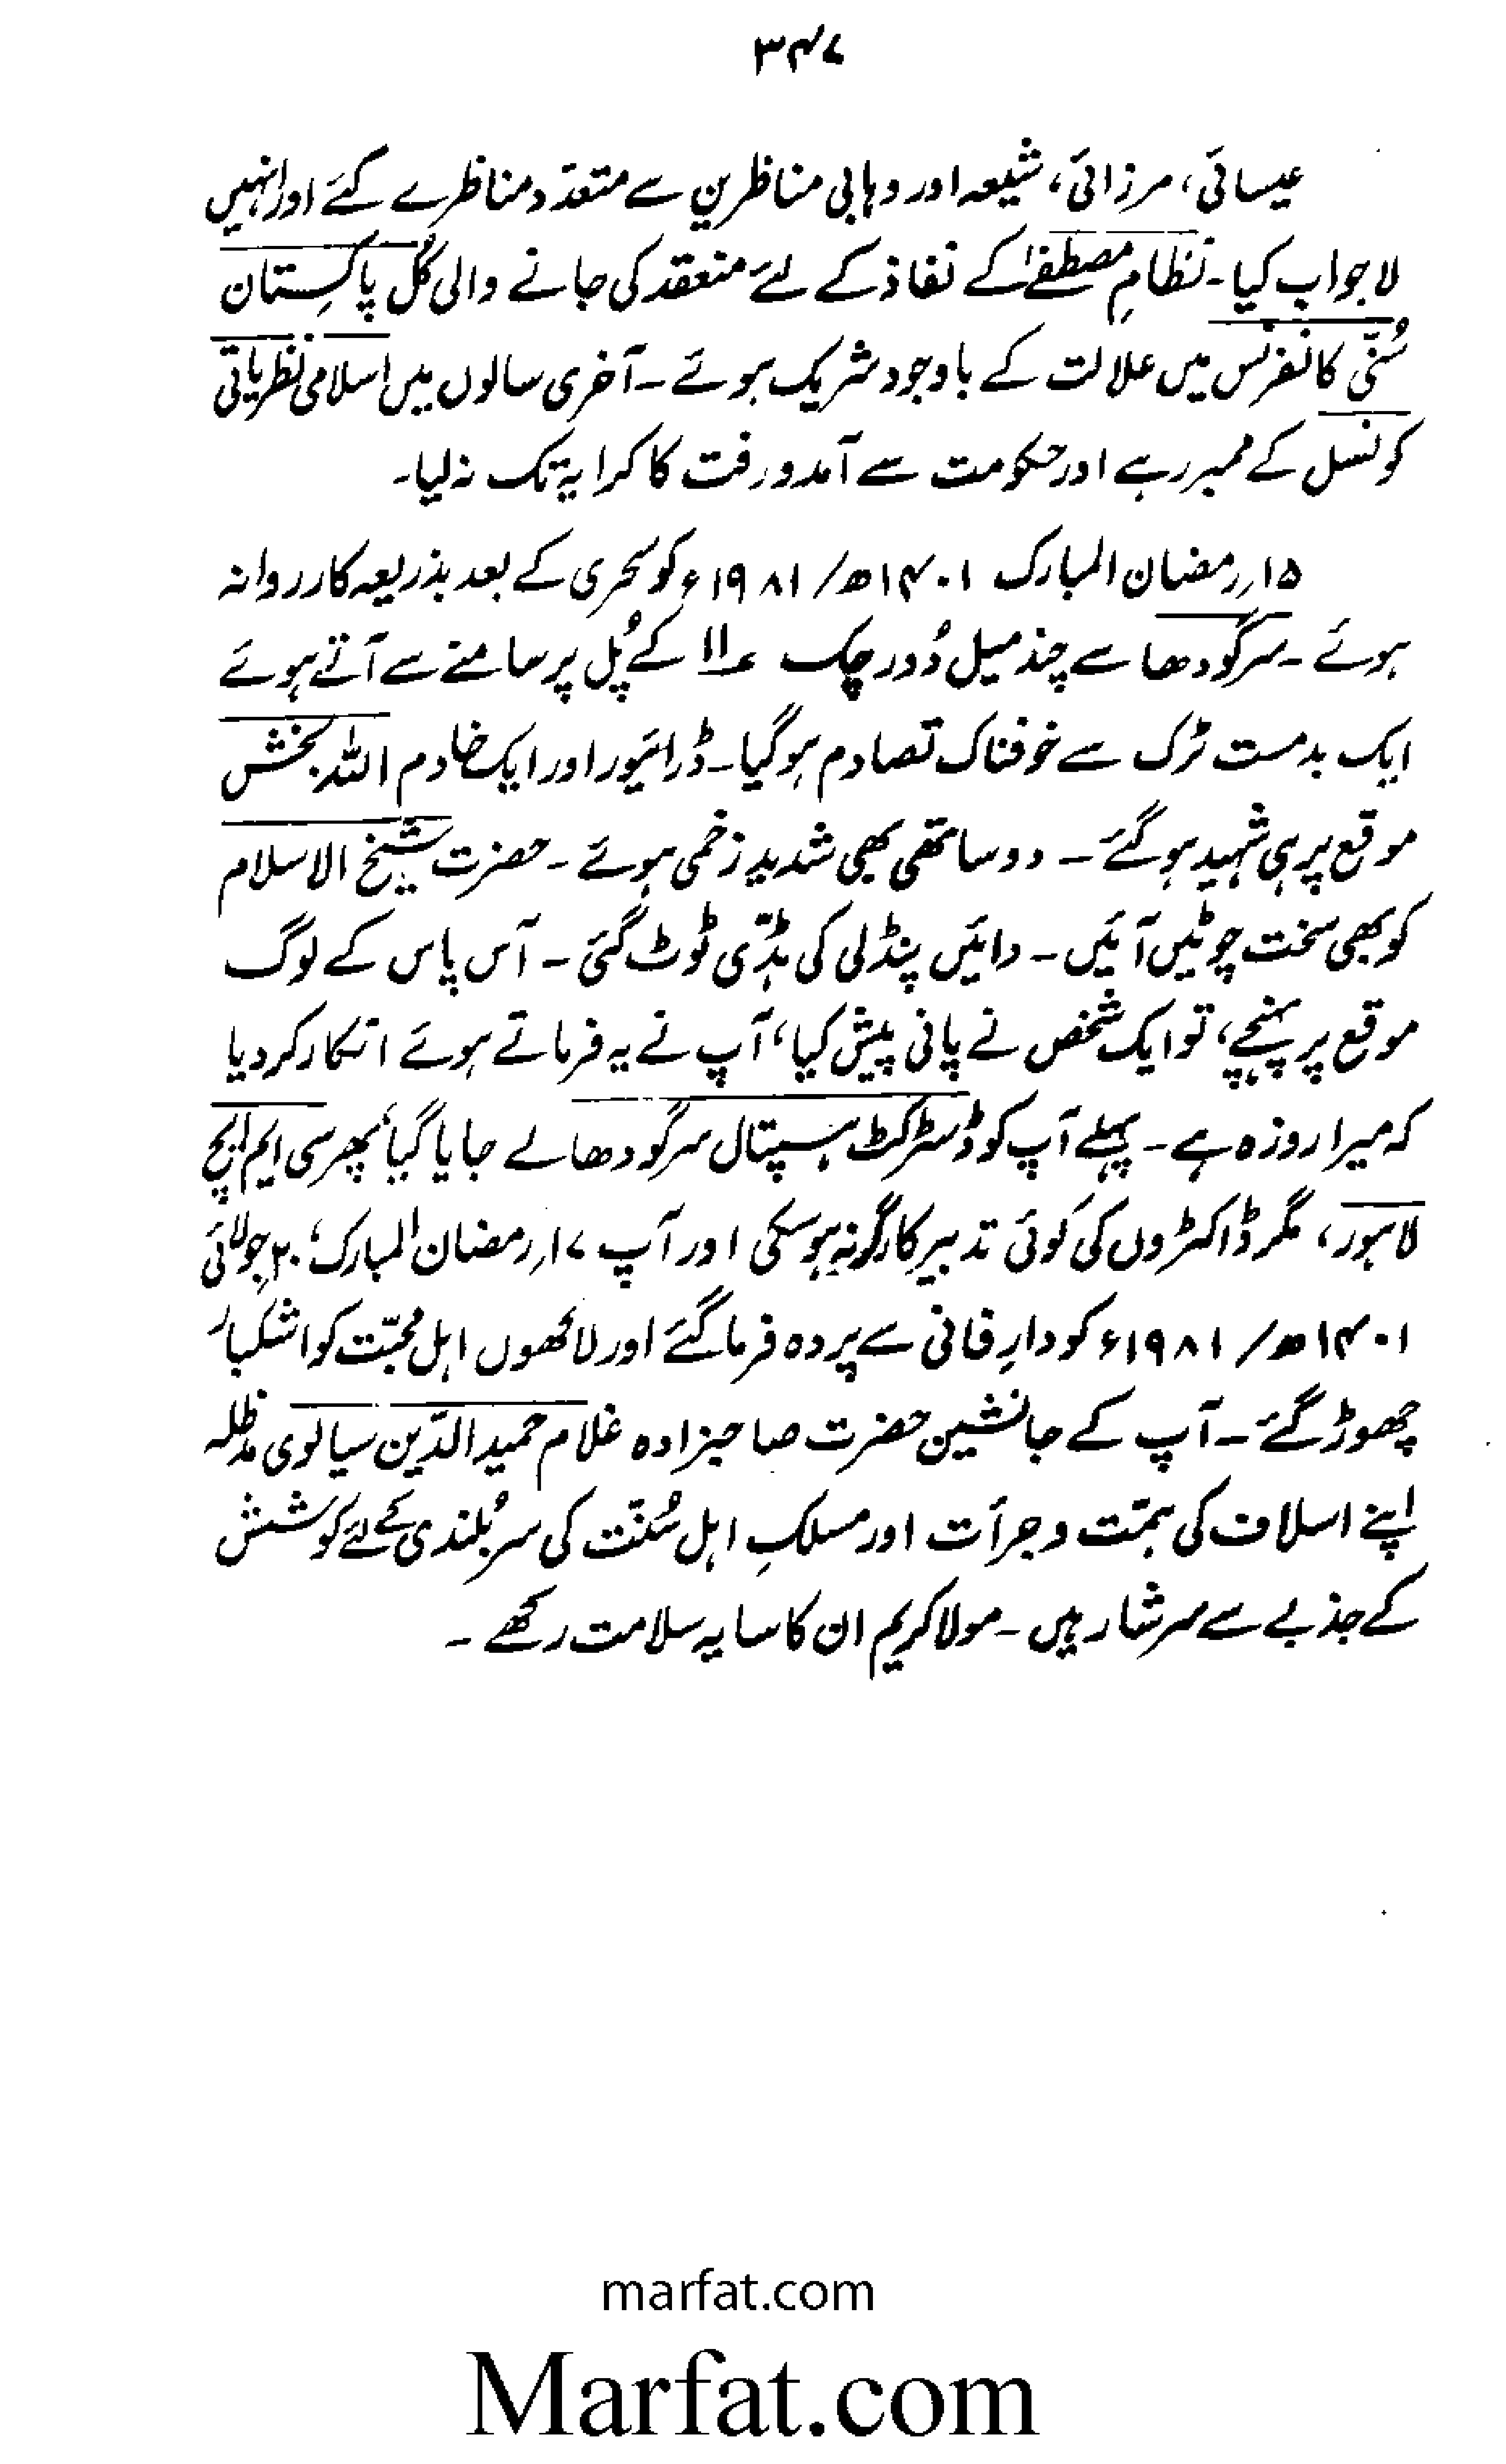 ۳۴۷
عیسائی، مرزائی، شیعہ اور وہابی مناظرین سے متعدّد مناظرے کئے اور انہیں
لاجواب کیا۔ نظامِ مصطفےٰ کے نفاذ کے لئے منعقد کی جانے والی کُل پاکستان
سُنّی کانفرنس میں علالت کے باوجود شریک ہوئے۔ آخری سالوں میں اسلامی نظریاتی
کونسل کے ممبر رہے اور حکومت سے آمدورفت کا کرایہ تک نہ لیا۔
۱۵؍رمضان المبارک ۱۴۰۱ھ/ ۱۹۸۱ء کو سحری کے بعد بذریعہ کار روانہ
ہوئے۔ سرگودھا سے چند میل دُور چک ؏۱۱ کے پُل پر سامنے سے آتے ہوئے
ایک بدمست ٹرک سے خوفناک تصادم ہوگیا۔ ڈرائیور اور ایک خادم اللہ بخش
موقع پر ہی شہید ہوگئے۔ دو ساتھی بھی شدید زخمی ہوئے۔ حضرت شیخ الاسلام
کو بھی سخت چوٹیں آئیں۔ دائیں پنڈلی کی ہڈّی ٹوٹ گئی۔ آس پاس کے لوگ
موقع پر پہنچے، تو ایک شخص نے پانی پیش کیا، آپ نے یہ فرماتے ہوئے انکار کردیا
کہ میرا روزہ ہے۔ پہلے آپ کو ڈسٹرکٹ ہسپتال سرگودھا لے جایا گیا، پھر سی ایم ایچ
لاہور، مگر ڈاکٹروں کی کوئی تدبیر کارگر نہ ہوسکی اور آپ ۱۷؍رمضان المبارک، ۲۰ جولائی
۱۴۰۱ھ/ ۱۹۸۱ء کو دارِ فانی سے پردہ فرماگئے اور لاکھوں اہل محبّت کو اشکبار
چھوڑ گئے۔ آپ کے جانشین حضرت صاحبزادہ غلام حمید الدّین سیالوی مدظلہ
اپنے اسلاف کی ہمّت و جرأت اور مسلکِ اہل سُنّت کی سربُلندی کے لئے کوشش
کے جذبے سے سرشار ہیں۔ مولا کریم ان کا سایہ سلامت رکھے۔
marfat.com
Marfat.com